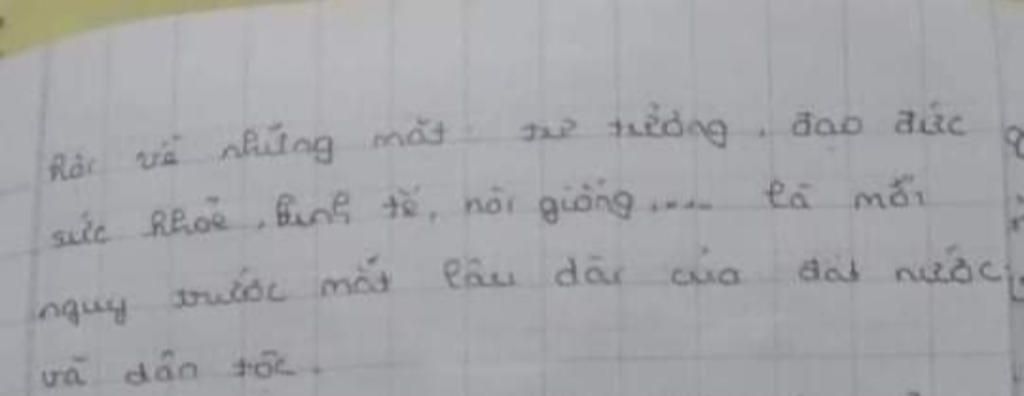 hội về những mặt tư tưởng, đạo đức
sức khoẻ, kinh tế, nòi giống.... là mối
nguy trước mắt lâu dài của đất nước
và dân tộc.